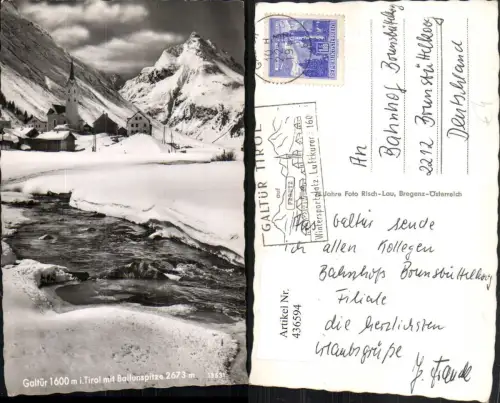 Galtür 1600 m i. Tirol mit Ballunspitze 2673 m
GALTÜR TIROL
Wintersportplatz Luftkurort 1600
REPUBLIK ÖSTERREICH
An
Bahnhof Brunsbüttelkoog
2212 Brunsbüttelkoog
Deutschland
Jahre Foto Risch-Lau, Bregenz-Österreich
Aus Galtür sende
ich allen Kollegen
Bahnhof Brunsbüttelkoog
Filiale
die herzlichsten
Urlaubsgrüße
Artikel Nr.
436594